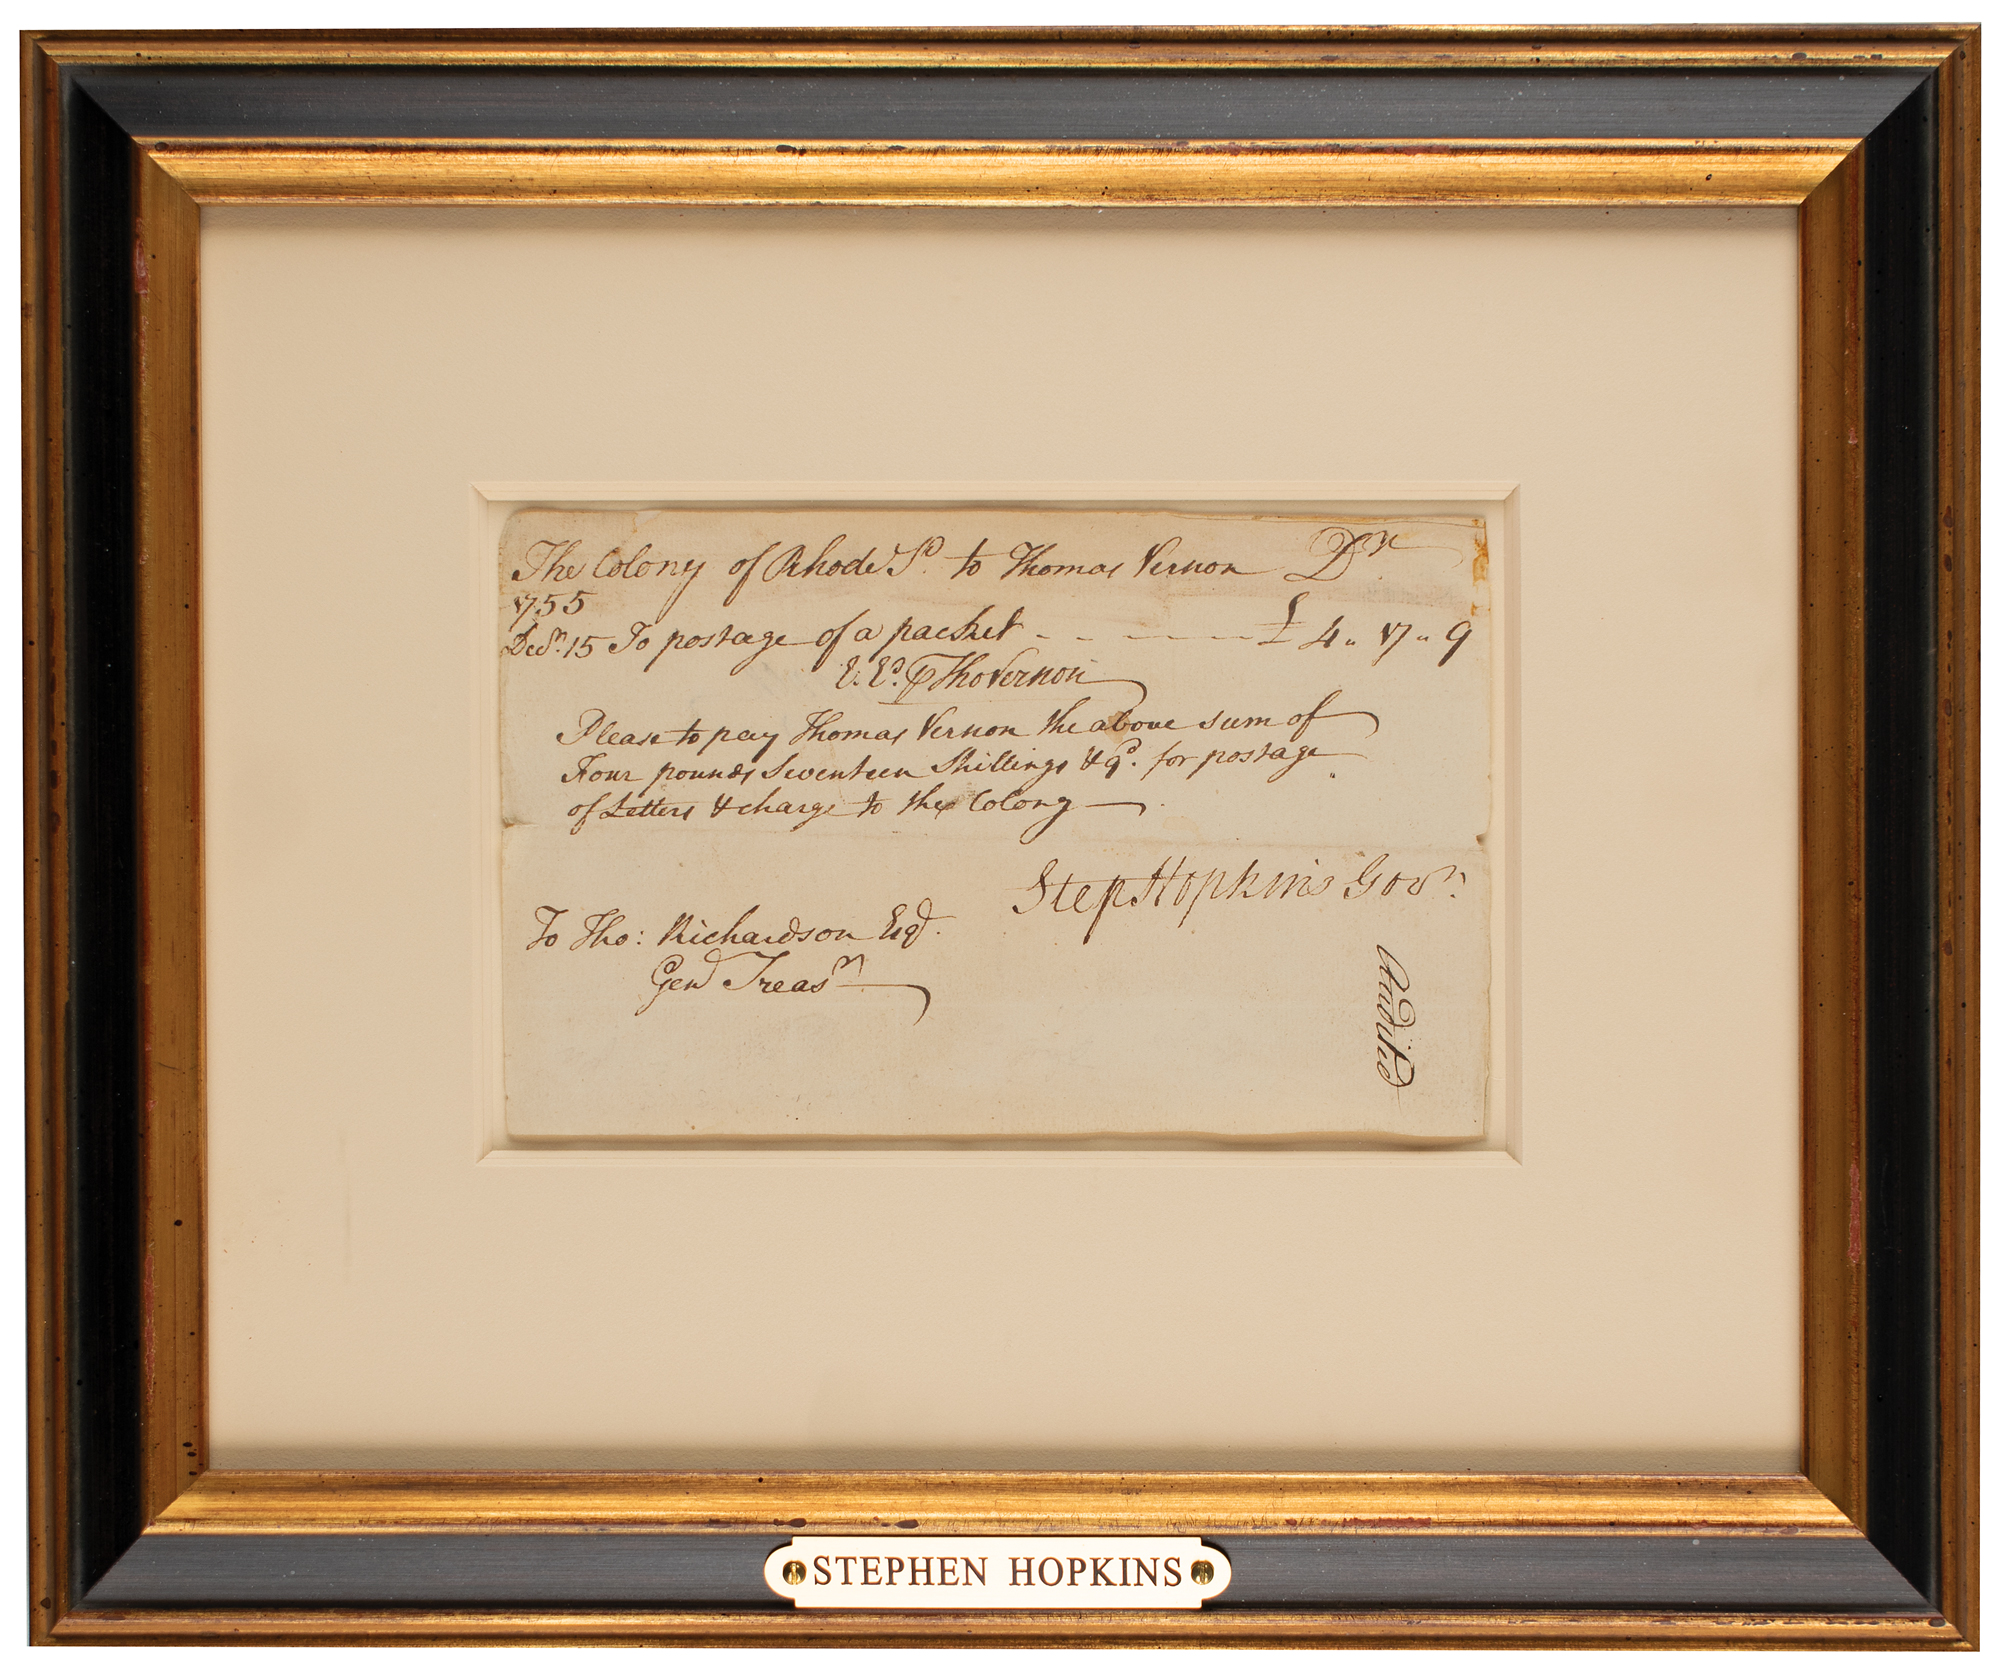 The Colony of Rhode Isd. to Thomas Vernon Dr.
1755
Decr. 15 To postage of a packet - - - - - £ 4 " 17 " 9
E. Ed. ⅌ Tho Vernon
Please to pay Thomas Vernon the above sum of
Four pounds Seventeen Shillings & 9d. for postage
of Letters & charge to the Colony
Step Hopkins Govr.
To Tho: Richardson Esqr.
Genl Treasr
Audited
STEPHEN HOPKINS